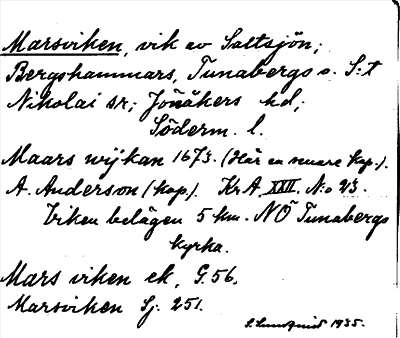 Marsviken, vik av Saltsjön;
Bergshammars, Tunabergs o. S:t
Nikolai sr; Jönåkers hd;
Söderm. l.
Maars wijkan 1673. (Här en nuare kop.).
A. Anderson (kop). Kr A. XXII. No 23.
Viken belägen 5 km. NÖ Tunabergs
kyrka.
Mars viken ek. G. 56.
Marsviken Sj. 251.
S. Lundquist 1935.